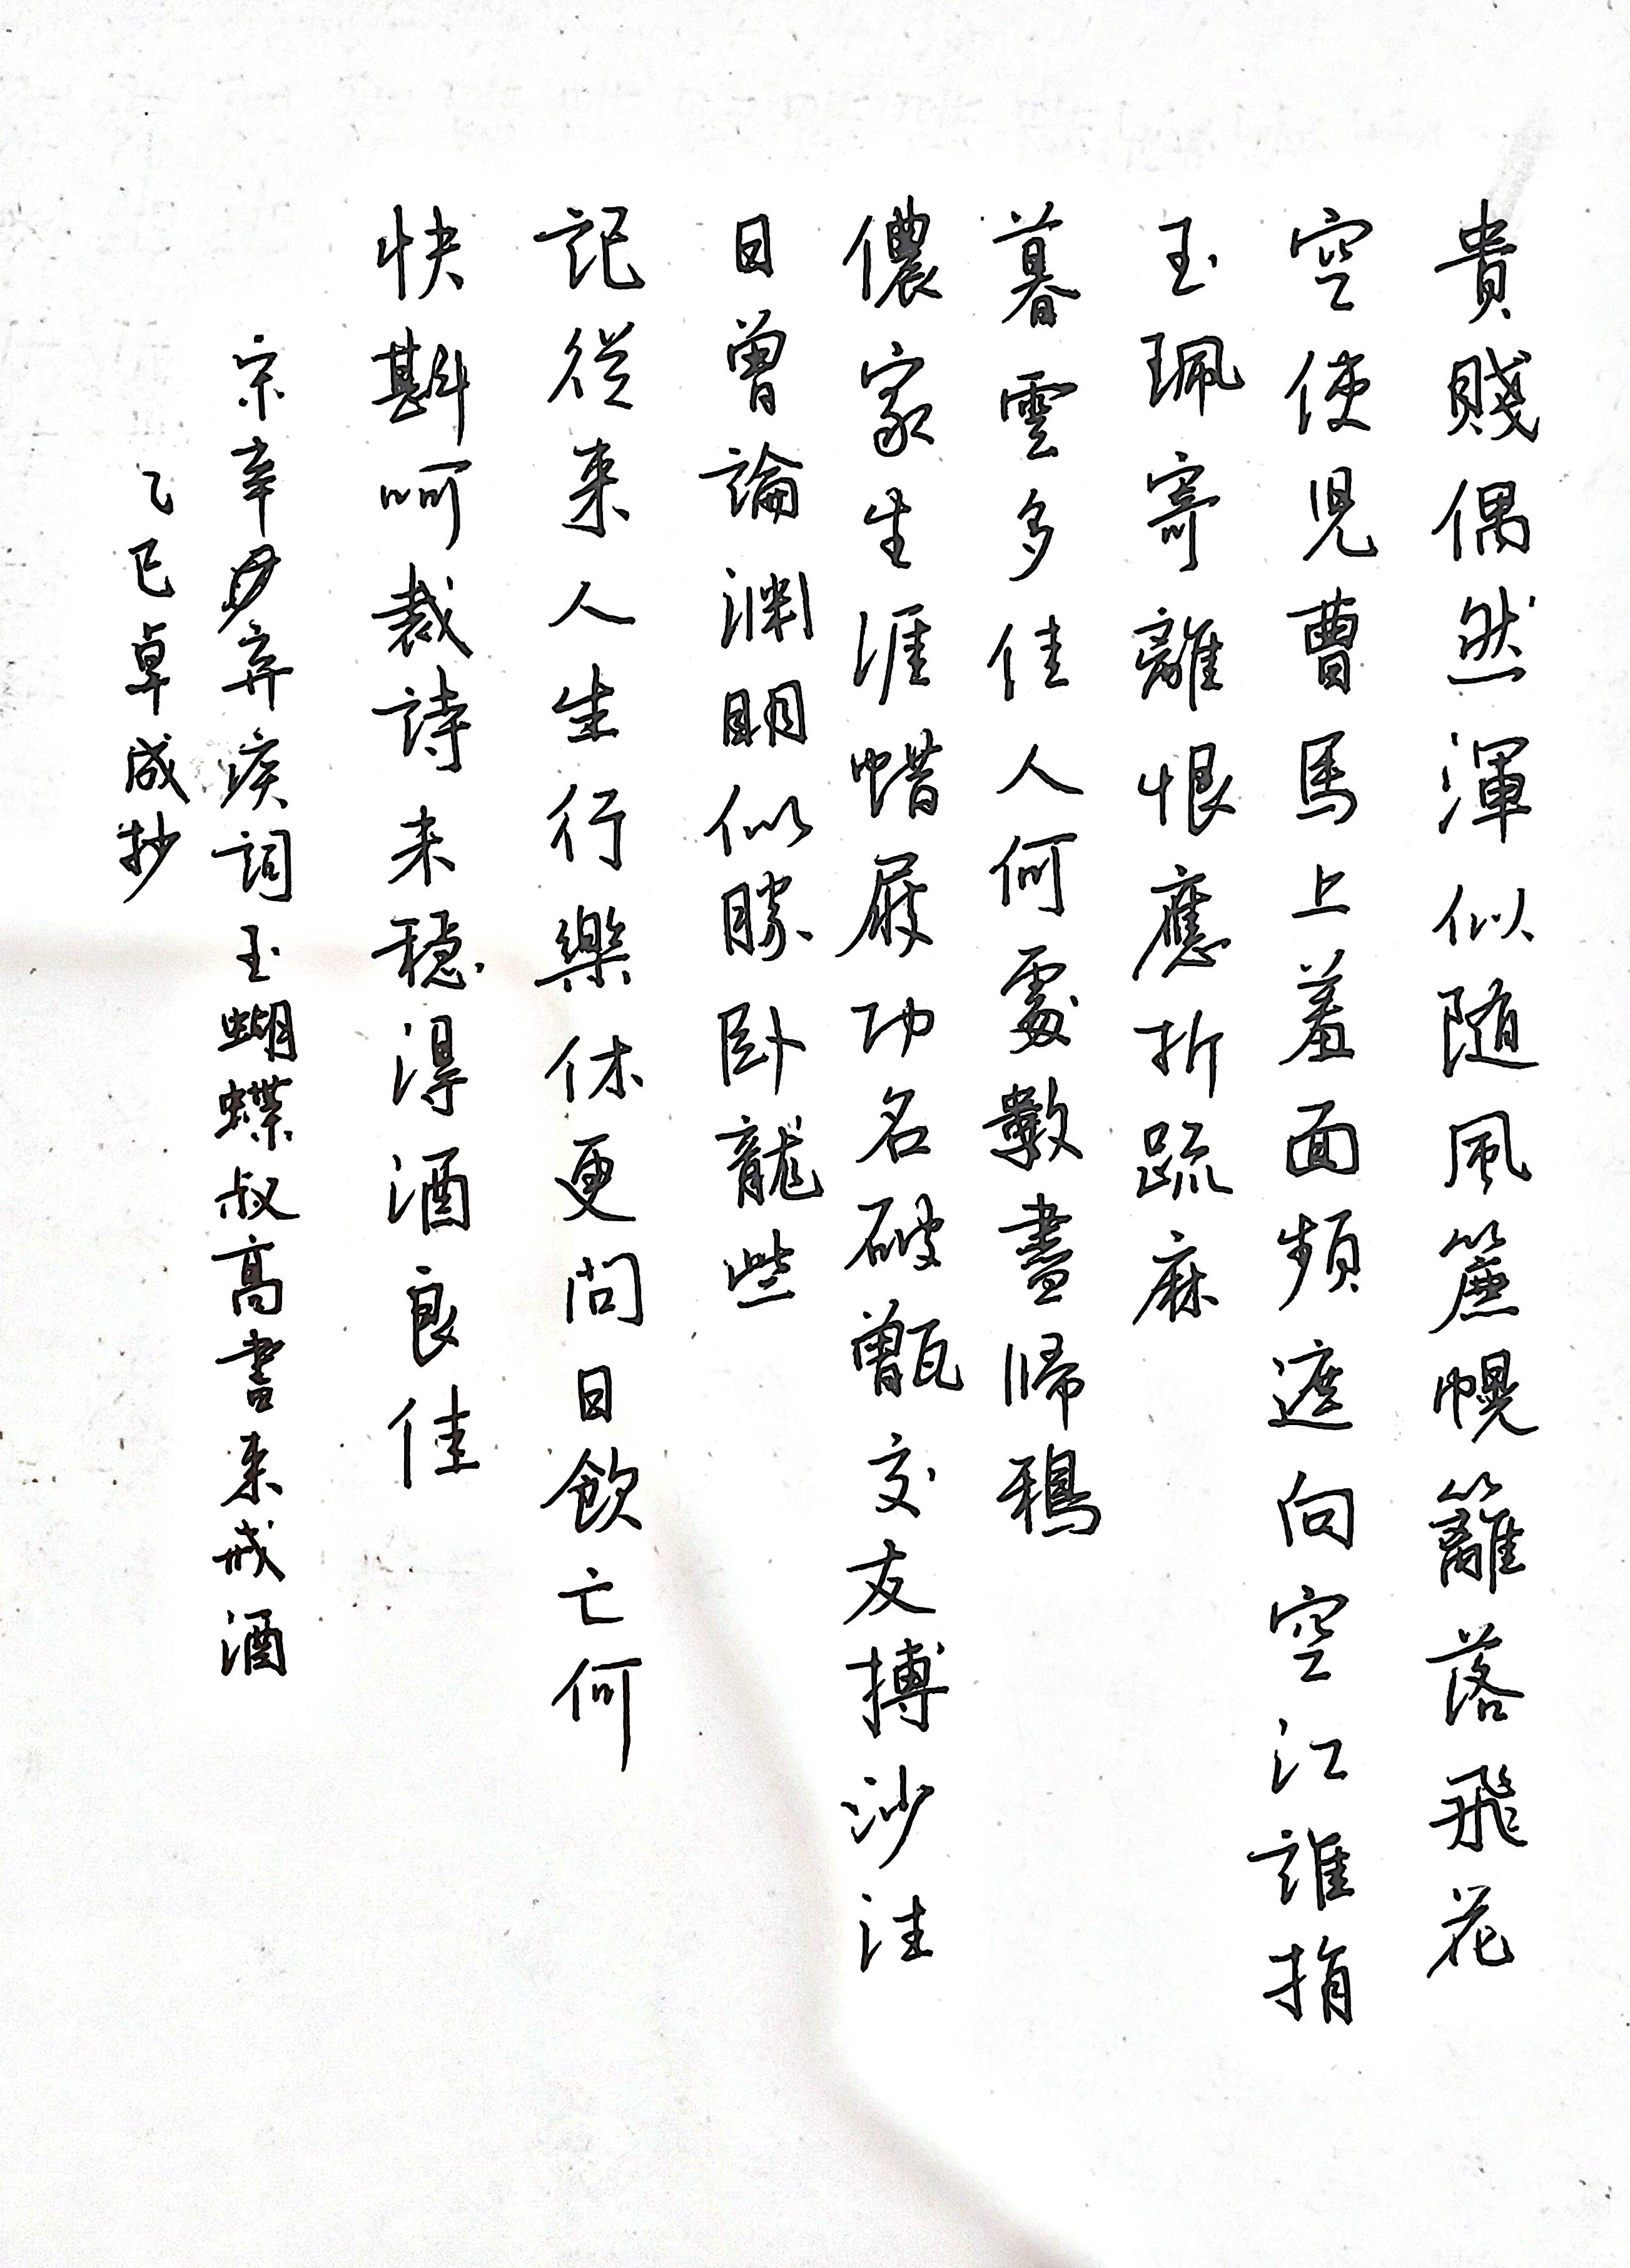 貴賤偶然渾似随風簾幌籬落飛花
空使児曹馬上羞面頻遮向空江誰捐
玉珮寄離恨應折疏麻
暮雲多佳人何處數盡歸鴉
儂家生涯蜡屐功名破甑交友搏沙
日曾論淵明似勝卧龍些
記從来人生行樂休更问日飲亡何
快斟呵裁詩未穏得酒良佳
宋辛弃疾词玉蝴蝶叔高書来戒酒
乙巳卓成抄